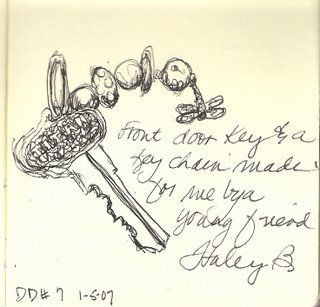 Front door key & a
key chain made
for me by a
young friend
Haley B
DD# 7 1-5-07